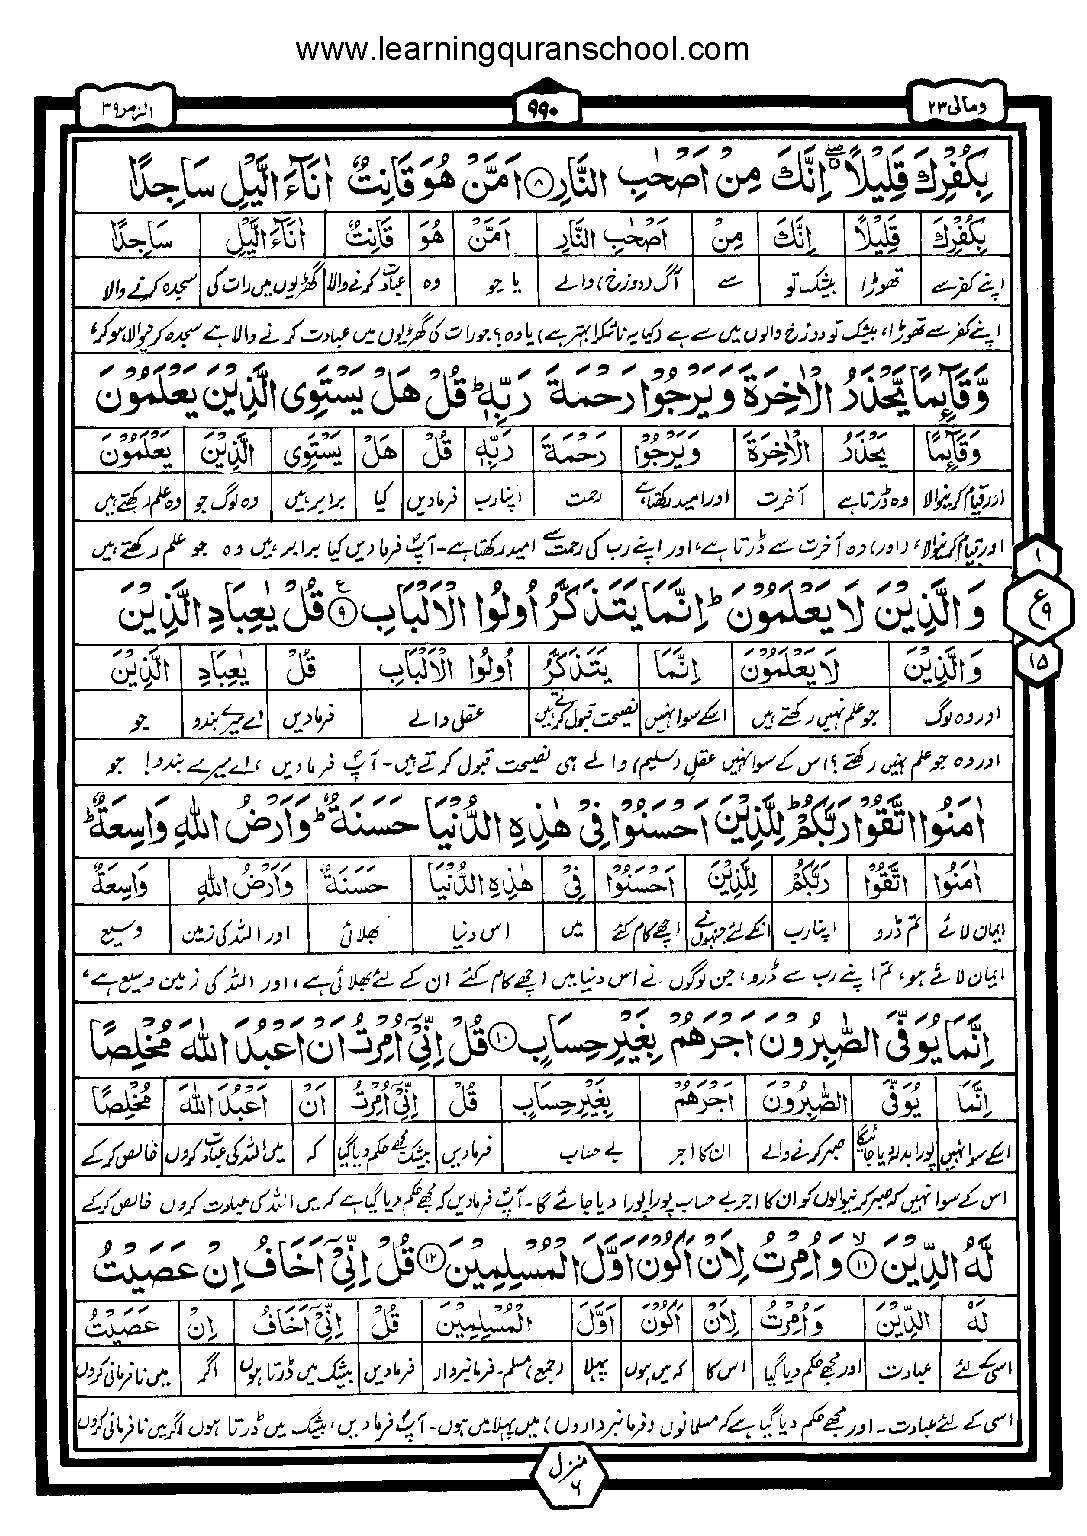 www.learningquranschool.com
ومالی ۲۳
۹۹۰
الزمر ۳۹
بِكُفْرِكَ قَلِيْلًا ۖ اِنَّكَ مِنْ اَصْحٰبِ النَّارِ ۸ اَمَّنْ هُوَ قَانِتٌ اٰنَآءَ الَّيْلِ سَاجِدًا
بِكُفْرِكَ قَلِيْلًا اِنَّكَ مِنْ اَصْحٰبِ النَّارِ اَمَّنْ هُوَ قَانِتٌ اٰنَآءَ الَّيْلِ سَاجِدًا
اپنے کفر سے تھوڑا بیشک تو سے آگ (دوزخ) والے یا جو وہ عبادت کرنے والا گھڑیوں میں رات کی سجدہ کرنے والا
اپنے کفر سے تھوڑا، بیشک تو دوزخ والوں میں سے ہے (کیا یہ ناشکرا بہتر ہے) یا وہ؟ جو رات کی گھڑیوں میں عبادت کرنے والا ہے سجدہ کرنیوالا ہو کر،
وَّقَآىِٕمًا يَّحْذَرُ الْاٰخِرَةَ وَيَرْجُوْا رَحْمَةَ رَبِّهٖ ؕ قُلْ هَلْ يَسْتَوِى الَّذِيْنَ يَعْلَمُوْنَ
وَقَآىِٕمًا يَحْذَرُ الْاٰخِرَةَ وَيَرْجُوْا رَحْمَةَ رَبِّهٖ قُلْ هَلْ يَسْتَوِى الَّذِيْنَ يَعْلَمُوْنَ
اور قیام کرنیوالا وہ ڈرتا ہے آخرت اور امید رکھتا ہے رحمت اپنا رب فرمادیں کیا برابر ہیں وہ لوگ جو وہ علم رکھتے ہیں
اور قیام کرنیوالا، (اور) وہ آخرت سے ڈرتا ہے، اور اپنے رب کی رحمت سے امید رکھتا ہے۔ آپؐ فرمادیں کیا برابر ہیں وہ جو علم رکھتے ہیں
۱
ع ۹
۱۵
وَالَّذِيْنَ لَا يَعْلَمُوْنَ ؕ اِنَّمَا يَتَذَكَّرُ اُولُوا الْاَلْبَابِ ۹ قُلْ يٰعِبَادِ الَّذِيْنَ
وَالَّذِيْنَ لَا يَعْلَمُوْنَ اِنَّمَا يَتَذَكَّرُ اُولُوا الْاَلْبَابِ قُلْ يٰعِبَادِ الَّذِيْنَ
اور وہ لوگ جو علم نہیں رکھتے ہیں اسکے سوا نہیں نصیحت قبول کرتے ہیں عقل والے فرمادیں اے میرے بندو جو
اور وہ جو علم نہیں رکھتے؟ اس کے سوا نہیں عقلِ (سلیم) والے ہی نصیحت قبول کرتے ہیں۔ آپؐ فرمادیں، اے میرے بندو! جو
اٰمَنُوا اتَّقُوْا رَبَّكُمْ ؕ لِلَّذِيْنَ اَحْسَنُوْا فِىْ هٰذِهِ الدُّنْيَا حَسَنَةٌ ؕ وَاَرْضُ اللّٰهِ وَاسِعَةٌ ؕ
اٰمَنُوْا اتَّقُوْا رَبَّكُمْ لِلَّذِيْنَ اَحْسَنُوْا فِىْ هٰذِهِ الدُّنْيَا حَسَنَةٌ وَاَرْضُ اللّٰهِ وَاسِعَةٌ
ایمان لائے تم ڈرو اپنا رب انکے لئے جنہوں نے اچھے کام کئے میں اس دنیا بھلائی اور اللہ کی زمین وسیع
ایمان لائے ہو، تم اپنے رب سے ڈرو، جن لوگوں نے اس دنیا میں اچھے کام کئے ان کے لئے بھلائی ہے، اور اللہ کی زمین وسیع ہے،
اِنَّمَا يُوَفَّى الصّٰبِرُوْنَ اَجْرَهُمْ بِغَيْرِ حِسَابٍ ۱۰ قُلْ اِنِّىْٓ اُمِرْتُ اَنْ اَعْبُدَ اللّٰهَ مُخْلِصًا
اِنَّمَا يُوَفَّى الصّٰبِرُوْنَ اَجْرَهُمْ بِغَيْرِ حِسَابٍ قُلْ اِنِّىْٓ اُمِرْتُ اَنْ اَعْبُدَ اللّٰهَ مُخْلِصًا
اسکے سوا نہیں پورا بدلہ دیا جائیگا صبر کرنے والے ان کا اجر بے حساب فرمادیں بیشک مجھے حکم دیا گیا کہ میں اللہ کی عبادت کروں خالص کر کے
اس کے سوا نہیں کہ صبر کرنیوالوں کو ان کا اجر بے حساب پورا پورا دیا جائے گا۔ آپؐ فرمادیں کہ مجھے حکم دیا گیا ہے کہ میں اللہ کی عبادت کروں خالص کر کے
لَّهُ الدِّيْنَ ۱۱ وَاُمِرْتُ لِاَنْ اَكُوْنَ اَوَّلَ الْمُسْلِمِيْنَ ۱۲ قُلْ اِنِّىْٓ اَخَافُ اِنْ عَصَيْتُ
لَهُ الدِّيْنَ وَاُمِرْتُ لِاَنْ اَكُوْنَ اَوَّلَ الْمُسْلِمِيْنَ قُلْ اِنِّىْٓ اَخَافُ اِنْ عَصَيْتُ
اسی کے لئے عبادت اور مجھے حکم دیا گیا اس کا کہ میں ہوں پہلا (جمع) مسلم۔ فرمانبردار فرمادیں بیشک میں ڈرتا ہوں اگر میں نافرمانی کروں
اسی کے لئے عبادت۔ اور مجھے حکم دیا گیا ہے کہ مسلمانوں (فرمانبرداروں) میں پہلا میں ہوں۔ آپؐ فرمادیں، بیشک میں ڈرتا ہوں اگر میں نافرمانی کروں
منزل ۶